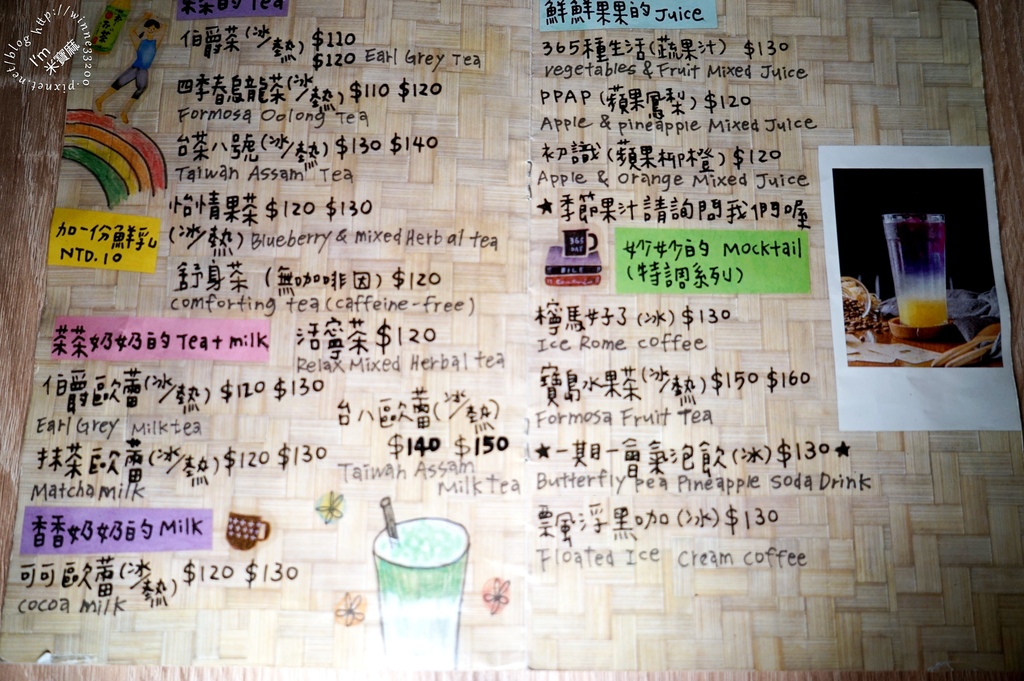 茶茶的 Tea
伯爵茶(冰/熱) $110
$120 Earl Grey Tea
四季春烏龍茶(冰/熱) $110 $120
Formosa Oolong Tea
台茶八號(冰/熱) $130 $140
Taiwan Assam Tea
怡情果茶 $120 $130
(冰/熱) Blueberry & mixed Herbal tea
加一份鮮乳
NTD.10
舒身茶 (無咖啡因) $120
comforting tea (caffeine-free)
活寧茶 $120
Relax Mixed Herbal tea
茶茶奶奶的 Tea + milk
伯爵歐蕾(冰/熱) $120 $130
Earl Grey Milktea
台八歐蕾(冰/熱)
$140 $150
Taiwan Assam
Milk Tea
抹茶歐蕾(冰/熱) $120 $130
Matcha milk
香香奶奶的 Milk
可可歐蕾(冰/熱) $120 $130
cocoa milk
鮮鮮果果的 Juice
365種生活(蔬果汁) $130
vegetables & Fruit Mixed Juice
PPAP (蘋果鳳梨) $120
Apple & pineapple Mixed Juice
初識(蘋果柳橙) $120
Apple & Orange Mixed Juice
★季節果汁請詢問我們喔
妙妙的 Mocktail
(特調系列)
檸馬好了(冰) $130
Ice Rome coffee
寶島水果茶(冰/熱) $150 $160
Formosa Fruit Tea
★一期一會氣泡飲(冰) $130★
Butterfly pea Pineapple Soda Drink
飄浮黑咖(冰) $130
Floated Ice Cream coffee
I'm
米寶麻
http://winne33200.pixnet.net/blog